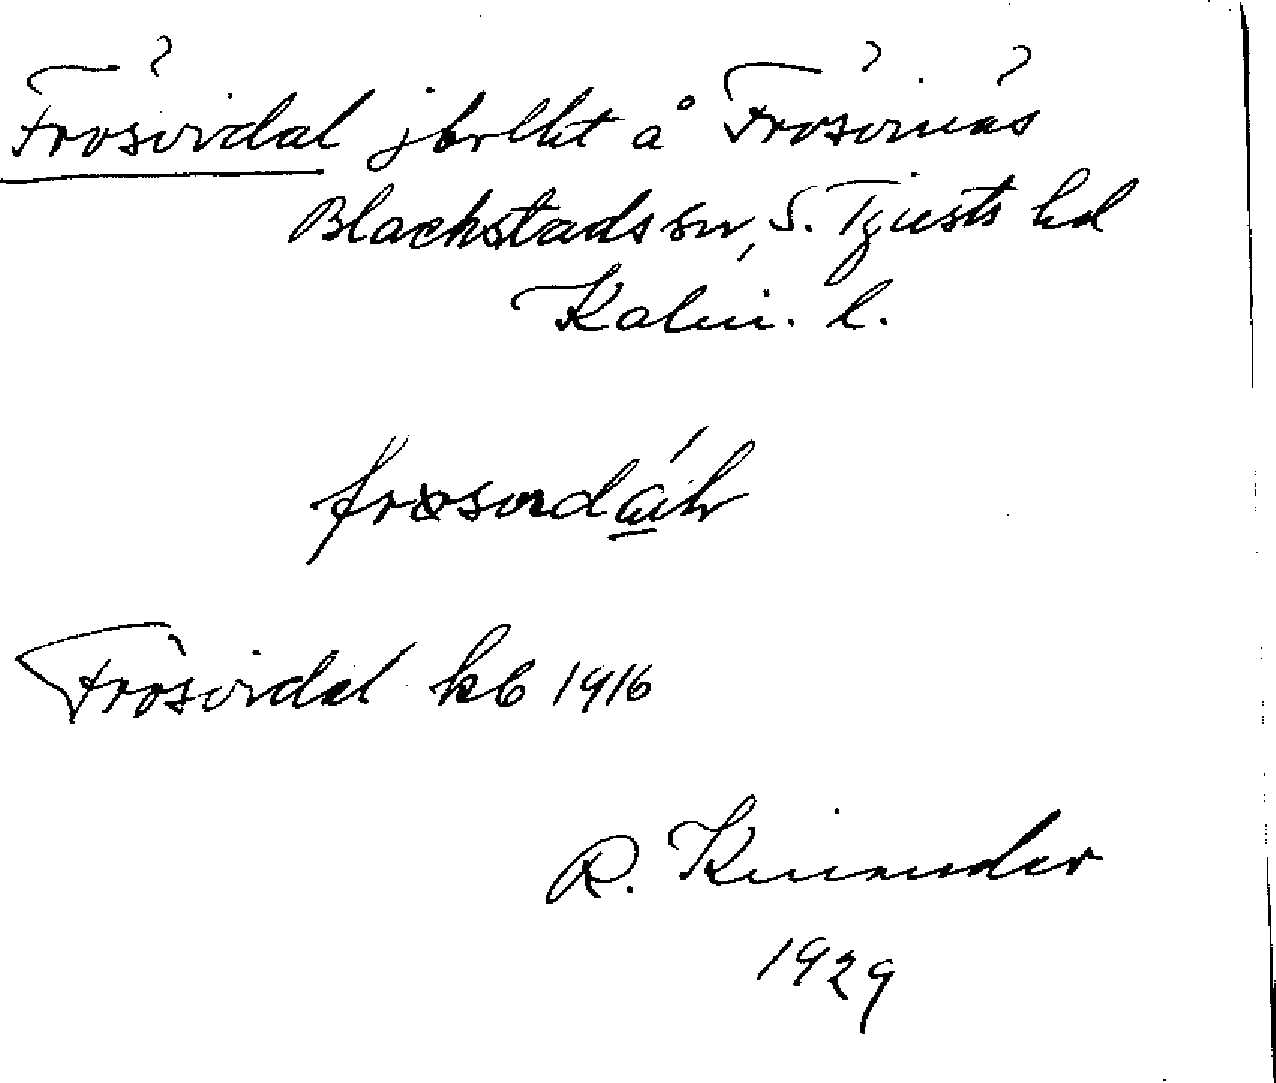 Frösvidal jbrlht å Frösvinäs
Blackstads sn, S. Tjusts hd
Kalm. l.
Frösvidal kb 1916
R. Kinander
1929